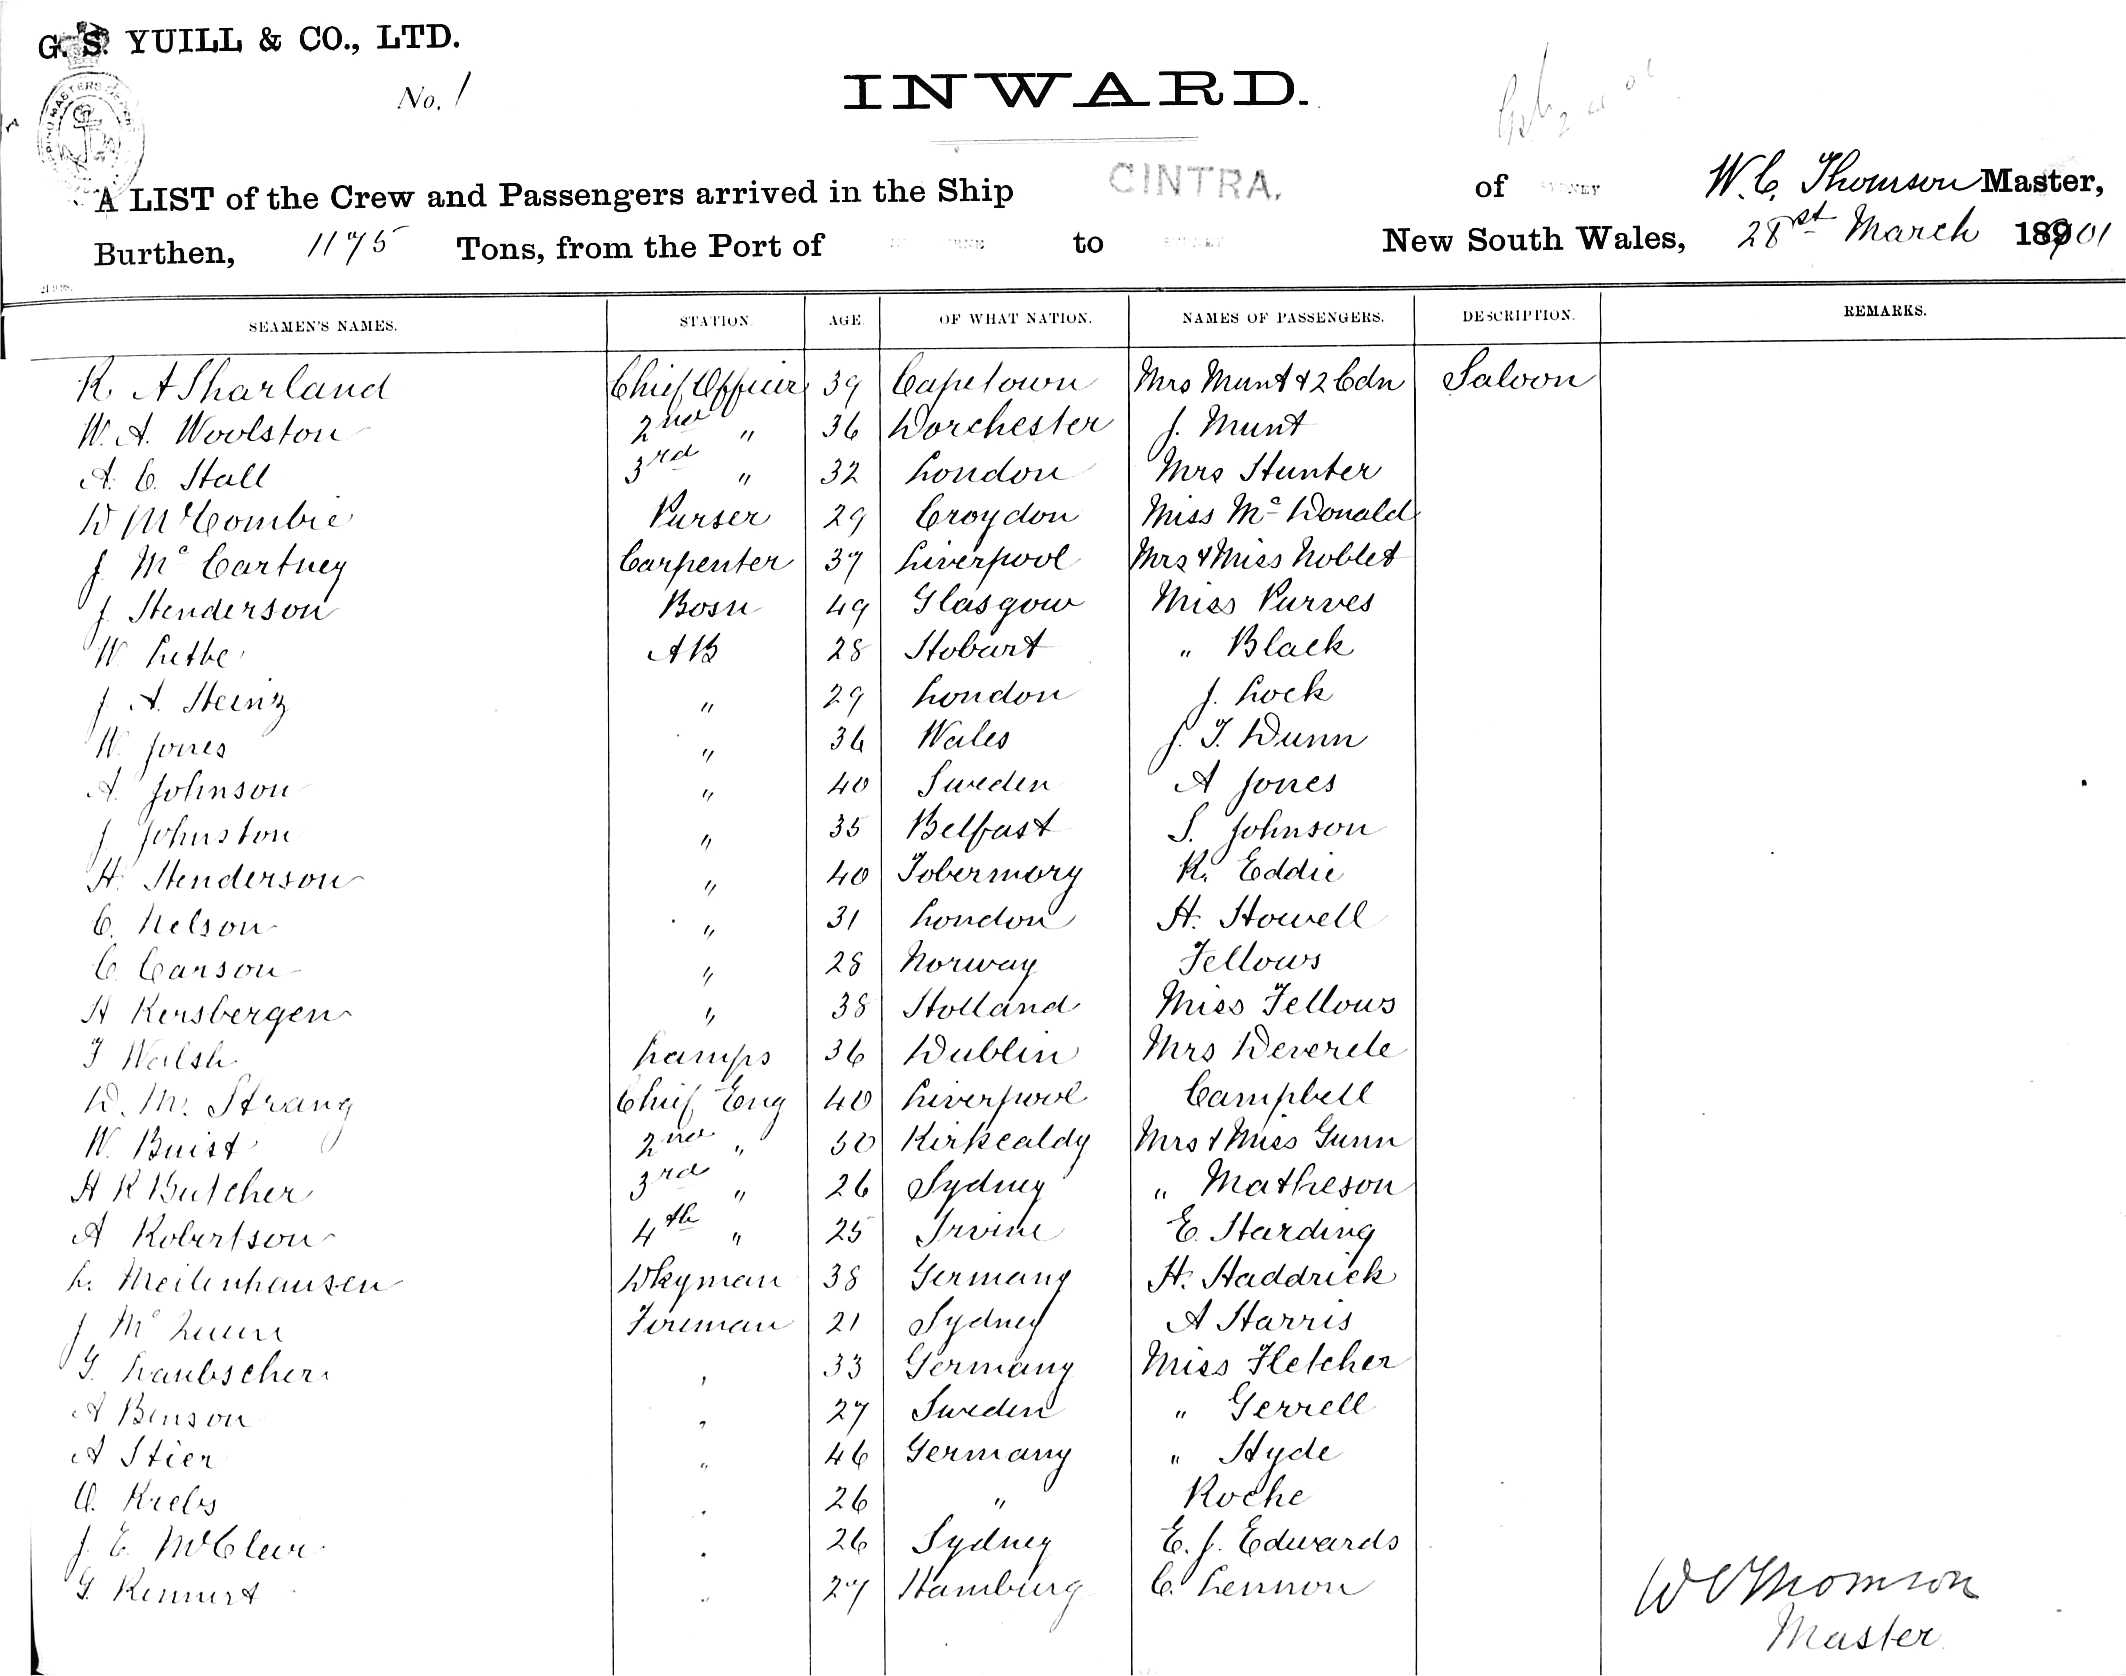 G. S. YUILL & CO., LTD.
No. 1
INWARD.
A LIST of the Crew and Passengers arrived in the Ship CINTRA. of W. C. Thomson Master,
Burthen, 1175 Tons, from the Port of to New South Wales, 28st March 1901
SEAMEN'S NAMES. STATION AGE. OF WHAT NATION. NAMES OF PASSENGERS. DESCRIPTION. REMARKS.
R. A Sharland Chief Officer 39 Capetown Mrs Munt & 2 Cdn Saloon
W. A. Woolston 2nd " 36 Dorchester J. Munt
A. C. Hall 3rd " 32 London Mrs Hunter
D McCombie Purser 29 Croydon Miss Mc Donald
J. Mc Cartney Carpenter 37 Liverpool Mrs & Miss Noblet
J. Henderson Bosn 49 Glasgow Miss Purves
W. AB 28 Hobart " Black
J A. Heinz " 29 London J. Lock
W. Jones " 36 Wales J. T. Dunn
A. Johnson " 40 Sweden A Jones
J Johnston " 35 Belfast S. Johnson
H. Henderson " 40 Tobermory R. Eddie
C. Nelson " 31 London H. Howell
C. Carson " 28 Norway Fellows
H Kersbergen " 38 Holland Miss Fellows
T Walsh Lamps 36 Dublin Mrs
D. M. Strang Chief Eng 40 Liverpool Campbell
W. Buist 2nd " 30 Kirkcaldy Mrs & Miss Gunn
H R Butcher 3rd " 26 Sydney " Matheson
A Robertson 4th " 25 Irvine E. Harding
L. Meilenhausen Dkyman 38 Germany H. Haddrick
J Mc Fireman 21 Sydney A Harris
G. Laubscher , 33 Germany Miss Fletcher
A Benson , 27 Sweden " Gerrell
A Stier " 46 Germany " Hyde
Krebs . 26 " Roche
J. E. McClew . 26 Sydney E. J. Edwards
G. . 27 Hamburg C. Lennon
W C Thomson
Master